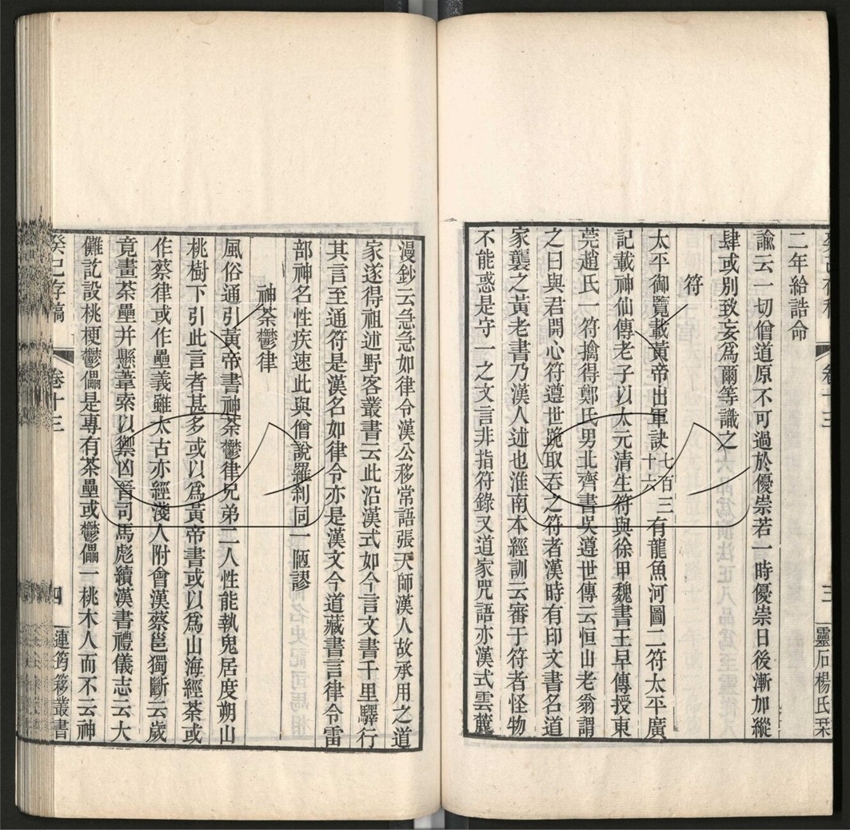 二年給誥命
諭云一切僧道原不可過於優崇若一時優崇日後漸加縱
肆或別致妄爲爾等識之
符
太平御覽載黃帝出軍訣七百三十六有龍魚河圖二符太平廣
記載神仙傳老子以太元清生符與徐甲魏書王早傳授東
莞趙氏一符擒得鄭氏男北齊書吳遵世傳云恒山老翁謂
之曰與君開心符遵世跪取吞之符者漢時有印文書名道
家襲之黃老書乃漢人述也淮南本經訓云審于符者怪物
不能惑是守一之文言非指符錄又道家咒語亦漢式雲麓
三
靈石楊氏栞
漫鈔云急急如律令漢公移常語張天師漢人故承用之道
家遂得祖述野客叢書云此沿漢式如今言文書千里驛行
其言至通符是漢名如律令亦是漢文今道藏書言律令雷
部神名性疾速此與僧說羅刹同一陋謬
神荼鬱律
風俗通引黃帝書神荼鬱律兄弟二人性能執鬼居度朔山
桃樹下引此言者甚多或以爲黃帝書或以爲山海經荼或
作蔡律或作壘義雖太古亦經淺人附會漢蔡邕獨斷云歲
竟畫荼壘并懸葦索以禦凶晉司馬彪續漢書禮儀志云大
儺訖設桃梗鬱儡是專有荼壘或鬱儡一桃木人而不云神
癸巳存稿
卷十三
四
連筠簃叢書